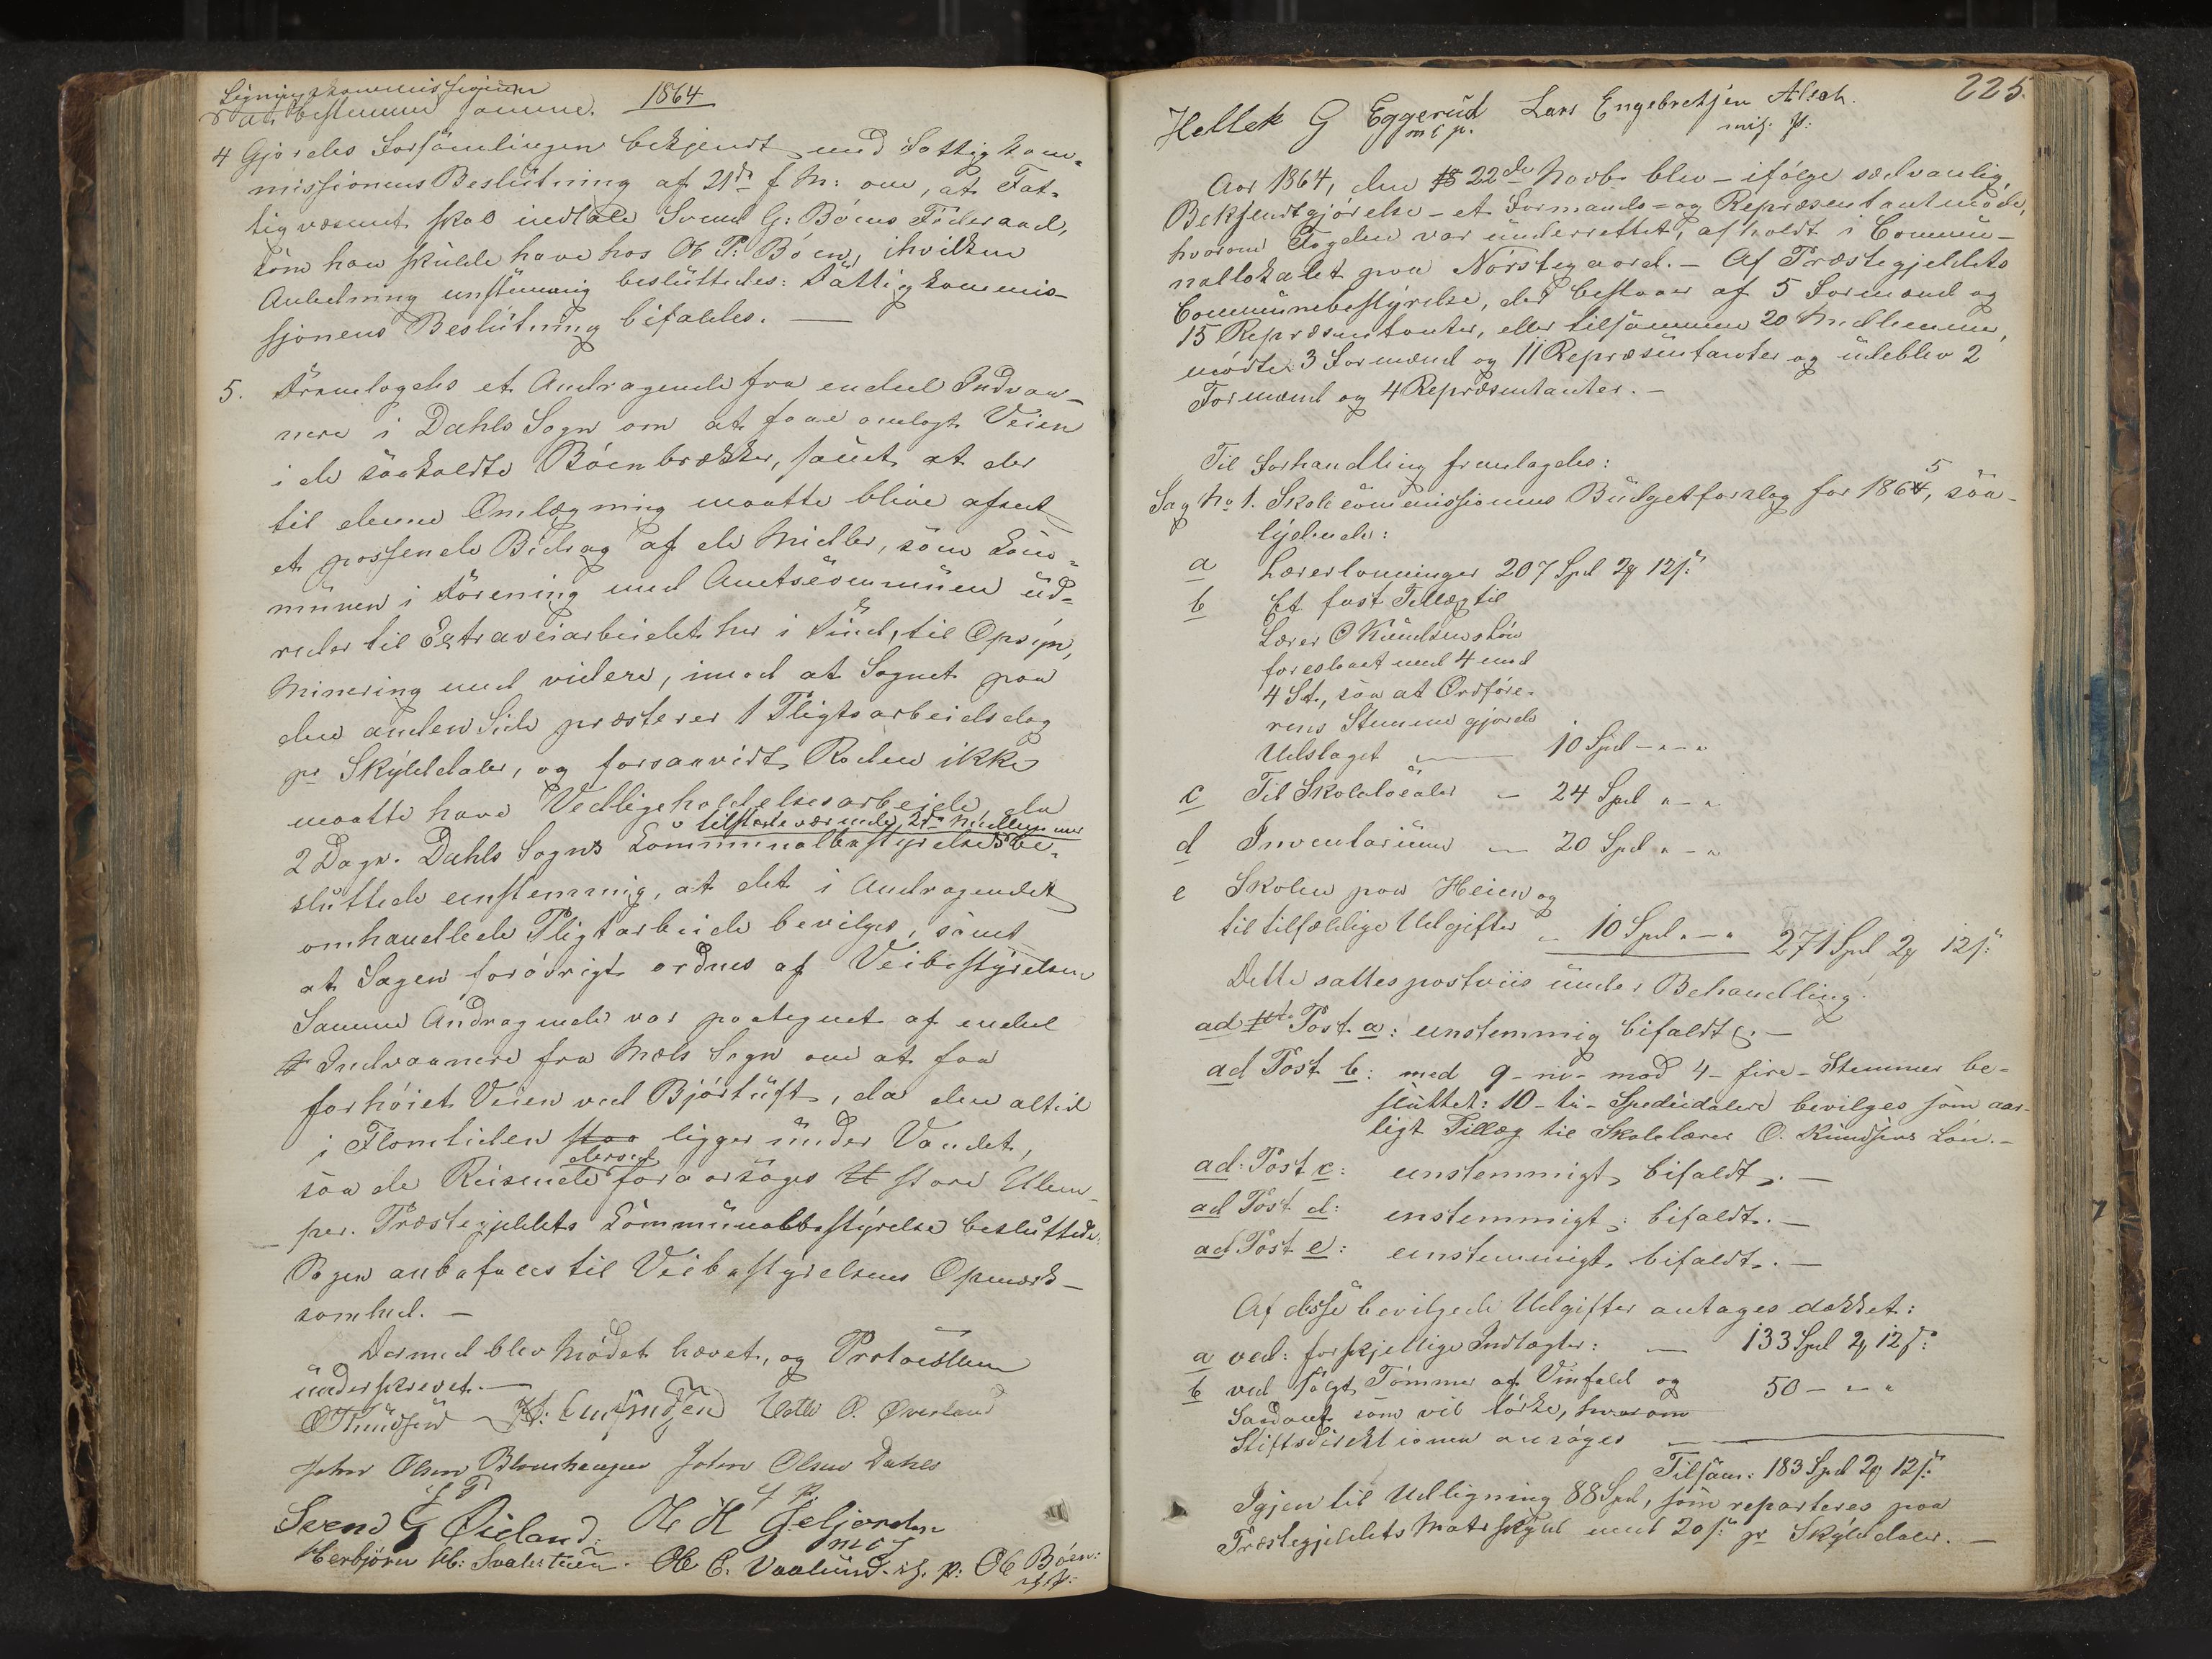 Ligningskommissionen
at bestemme samme. 1864
4 Gjordes Forsamlingen bekjendt med Fattigkom-
missionens Beslutning af 21de f. M: om, at Fat-
tigvæsenet skal indtale Svend G: Böens Föderaad,
som han skulde have hos Ole P: Böen, i hvilken
Anledning enstemmig besluttedes: Fattigkommis-
sjonens Beslutning bifaldes. —
5. Fremlagdes et Andragende fra endeel Indvaa-
nere i Dahls Sogn om at faae omlagt Veien
i de saakaldte Böenbrækker, samt at der
til denne Omlægning maatte blive afsat
et passende Bidrag af de Midler, som Kom-
munen i Forening med Amtscommunen ud-
reder til Extraveiarbeidet her i Tind, til Opsyn,
Minering med videre, imod at Sognet paa
den anden Side præsterer 1 Pligtsarbeidsdag
pr Skylddaler, og forsaavidt Roden ikke
maatte have Vedligeholdelsesarbeide, da
tilstedeværende 2de Medlemmer
2 Dage. Dahls Sogns Kommunalbestyrelses be-
sluttede enstemmig, at det i Andragendet
omhandlede Pligtarbeide bevilges, samt
at Sagen forövrigt ordnes af Veibestyrelsen
Samme Andragende var paategnet af endeel
Indvaanere fra Mæls Sogn om at faa
forhöiet Veien ved Björtuft, da den altid
i Flomtiden staa ligger under Vandet,
derved
saa de Reisende foraarsages store Ulem-
per. Præstegjeldets Kommunalbestyrelse besluttede:
Sagen anbefales til Veibestyrelsens Opmærk-
somhed. —
Dermed blev Mödet hævet, og Protocollen
underskrevet. —
O Knudsen H: Amundsen O. Överland
John Olsen John Olsen Dahle
Svend G Öieland. Ole H Geljordn
Herbjörn H: Svalesteen. Ole E. Vaalund. Ole Böen:
225.
Hellek G Eggerud Lars Engebretsen
m f p.
Aar 1864, den 18 22de Novbr blev – ifölge sædvanlig
Bekjendtgjörelse – et Formands- og Repræsentantmöde,
hvorom Fogden var underrettet, afholdt i Commu-
nallokalet paa Nörstegaard. – Af Præstegjeldets
Communebestyrelse, der bestaaer af 5 Formænd og
15 Repræsentanter, eller tilsammen 20 Medlemmer,
mödte 3 Formænd og 11 Repræsentanter og udeblev 2
Formænd og 4 Repræsentanter. –
Til Forhandling fremlagdes:
Sag No 1. Skolecommissionens Budgetforslag for 1865, saa-
lydende:
a Lærerlönninger 207 Spd 2 12 s:
b Et fast Tillæg til
Lærer O Knudsens Lön
foreslaaet med 4 mod
4 St., saa at Ordföre-
rens Stemme gjorde
Udslaget — 10 Spd – " – "
c Til Skolelocaler – 24 Spd " – "
d Inventarium – 20 Spd " – "
e Skolen paa Heien og
til tilfældige Udgifter – 10 Spd " – " 271 Spd 2 12 s:
Dette sattes postviis under Behandling:
ad Post a: eenstemmig bifaldt. –
ad Post b: med 9 – ni – mod 4 – fire – Stemmer be-
sluttet: 10 – ti – Speciedalere bevilges som aar-
ligt Tillæg til Skolelærer O. Knudsens Lön. –
ad: Post c: eenstemmigt bifaldt. –
ad Post d: enstemmigt: bifaldt. –
ad Post e: eenstemmigt bifaldt. –
Af disse bevilgede Udgifter antages dækket:
a ved: forskjellige Indtægter: — 133 Spd 2 12 s:
b ved solgt Tömmer af Vinfald og 50 – " – "
som vil törke, hvorom
Stiftsdirektionen ansöges
Tilsam: 183 Spd 2 12 s:
Igjen til Udligning 88 Spd, som reparteres paa
Præstegjeldets Matrskyld med 20 s: pr Skylddaler. –